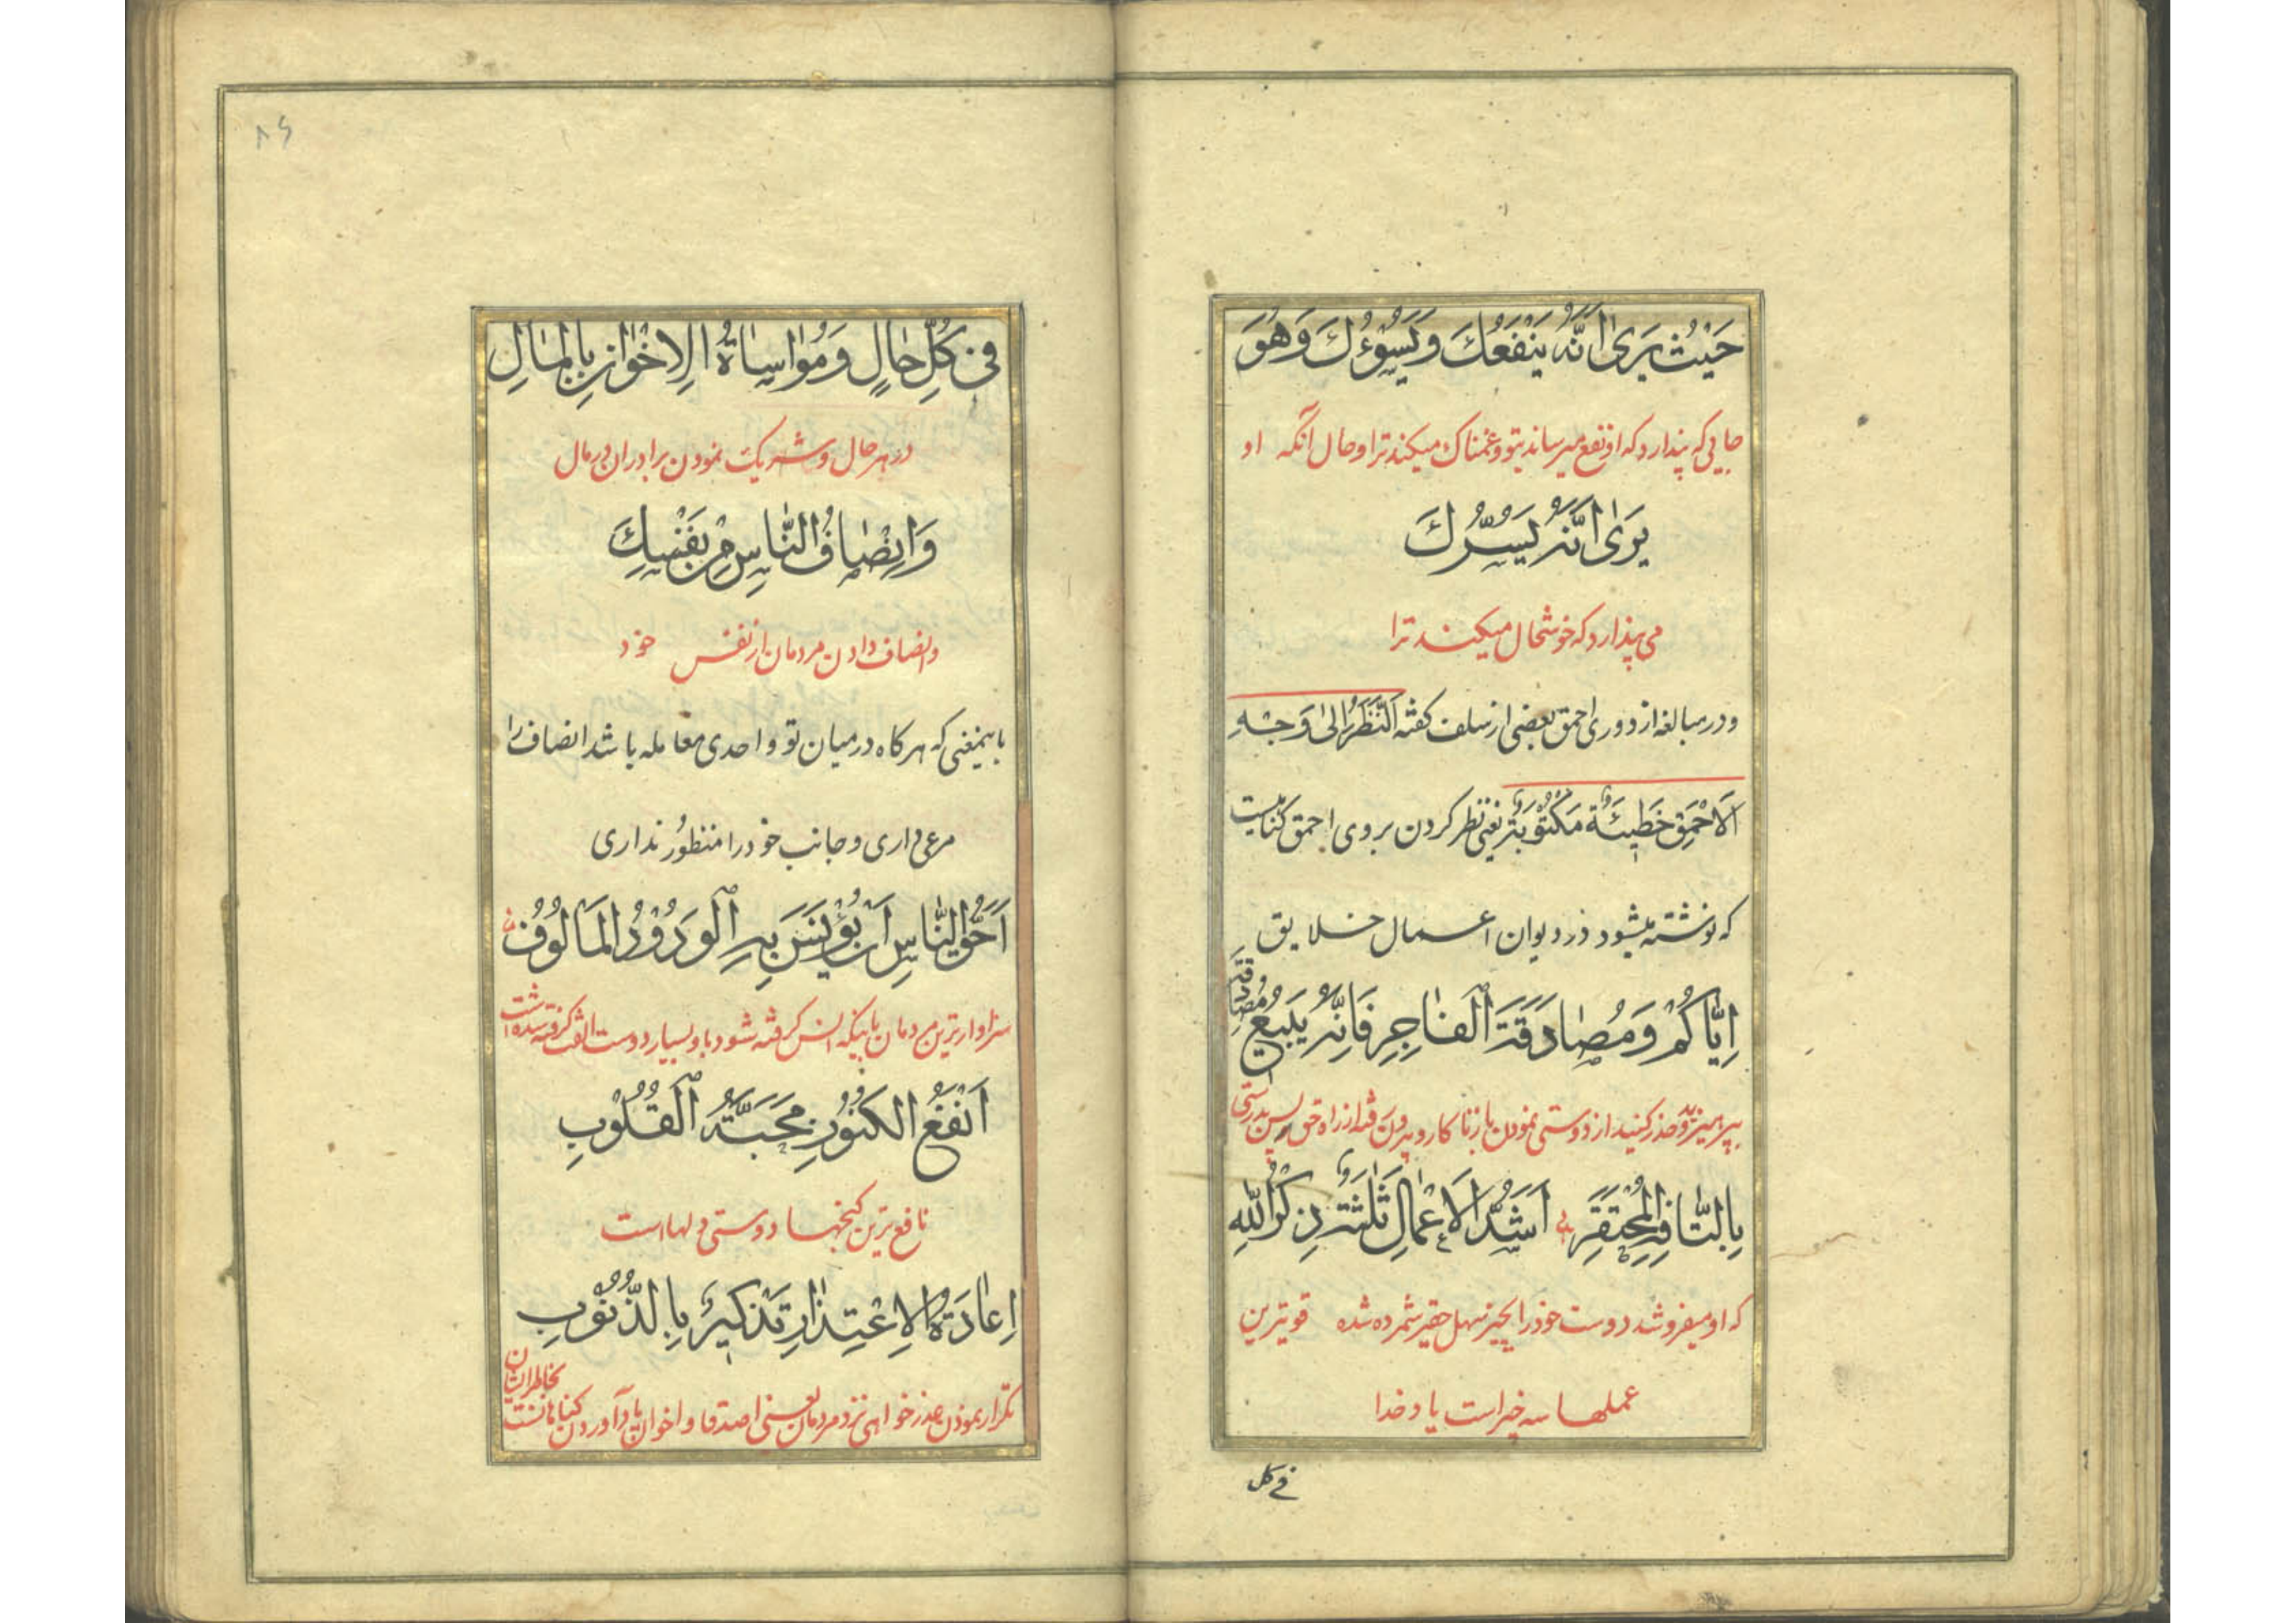 حَيْثُ يَرىٰ اَنَّهُ يَنْفَعُكَ وَيَسُوْءُكَ وَهُوَ
جايى كه پندارد كه او نفع ميرساند بتو و غمناك ميكند ترا و حال آنكه او
يَرىٰ اَنَّهُ يَسُرُّكَ
مى پندارد كه خوشحال ميكند ترا
و در مبالغه از دورى احمق بعضى از سلف كفته اَلنَّظَرُ اِلىٰ وَجْهِ
اَلاَحْمَقِ خَطيئَةٌ مَكْتُوبَةٌ يعنى نظر كردن بر روى احمق كناهيست
كه نوشته ميشود در ديوان اعمال خلايق
اِيّاكُمْ وَمُصٰادَقَةَ الْفٰاجِرِ فَاِنَّهُ يَبيعُ مُصٰادِقَهُ
بپرهيزيد و حذر كنيد از دوستى نمودن با زناكار و بيرون رفته از راه حق پس بدرستى
بِالتّٰافِهِ الْمُحْتَقَرِ اَشَدُّ الْاَعْمٰالِ ثَلٰثَةٌ ذِكْرُ اللهِ
كه او ميفروشد دوست خود را بچيز سهل حقير شمرده شده قويترين
عملها سه چيز است ياد خدا
فى كل
٨٦
فى كُلِّ حٰالٍ وَمُوٰاسٰاةُ الْاِخْوٰانِ بِالْمٰالِ
در هر حال و شريك نمودن برادران در مال
وَاِنْصٰافُ النّٰاسِ مِنْ نَفْسِكَ
و انصاف دادن مردمان از نفس خود
باينمعنى كه هر كاه در ميان تو و احدى معامله باشد انصاف را
مرعى دارى و جانب خود را منظور ندارى
اَحَقُّ النّٰاسِ اَنْ يُؤْنَسَ بِهِ الْوَدُوْدُ الْمَأْلُوْفُ
سزاوارترين مردمان باينكه انس كرفته شود باو بسيار دوست الفت كرفته شده است
اَنْفَعُ الْكُنُوْزِ مَحَبَّةُ الْقُلُوْبِ
نافع ترين كنجها دوستى دلها است
اِعٰادَةُ الْاِعْتِذٰارِ تَذْكيرٌ بِالذُّنُوْبِ
تكرار نمودن عذرخواهى نزد مردمان يعنى اصدقا و اخوان ياد آوردن كناهانست بخاطر ايشان